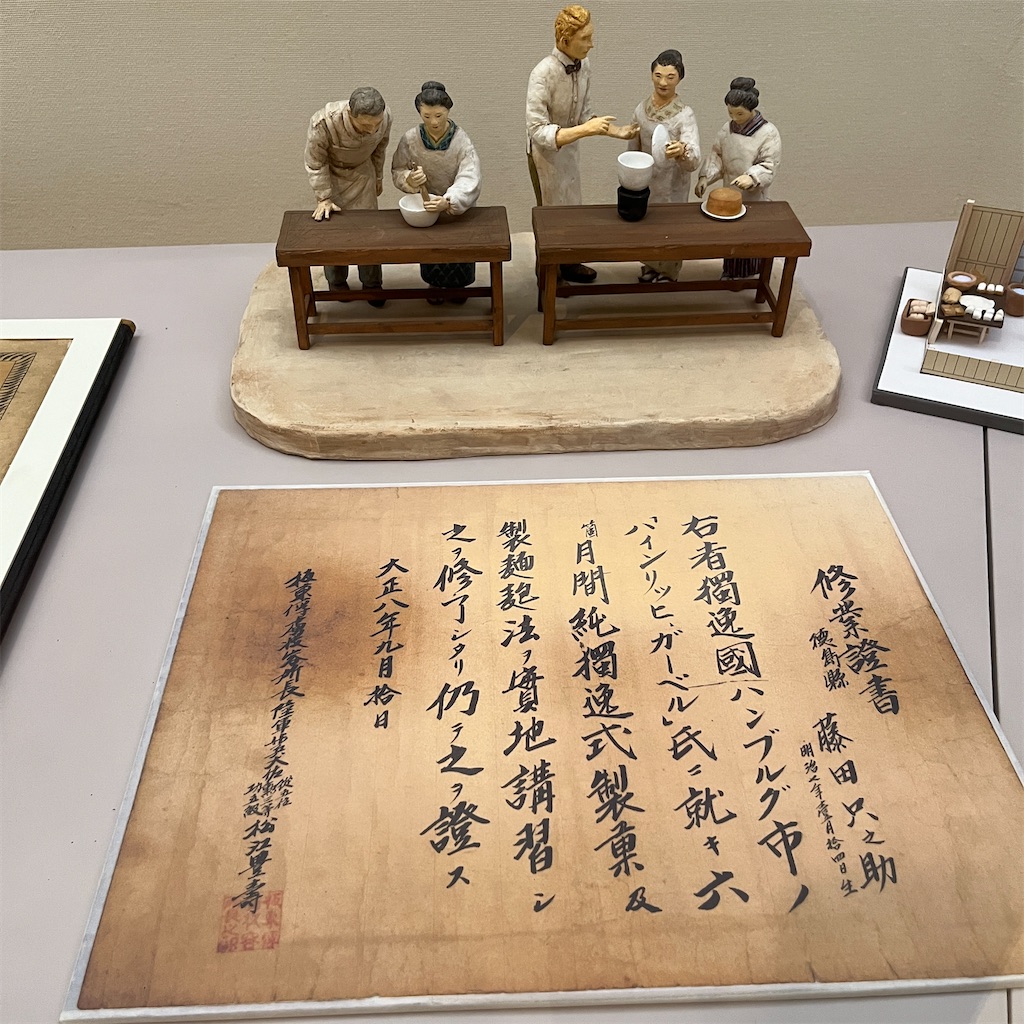 修業證書
徳島縣
藤田只之助
明治七年壹月拾四日生
右者獨逸國ハンブルグ市ノ
「ハインリッヒ、ガーベル」氏ニ就キ六
箇月間純獨逸式製菓及
製麺麭法ヲ實地講習シ
之ヲ修了シタリ仍テ之ヲ證ス
大正八年九月拾日
板東俘虜收容所長陸軍歩兵大佐
從五位
勲三等
功五級
松江豐壽